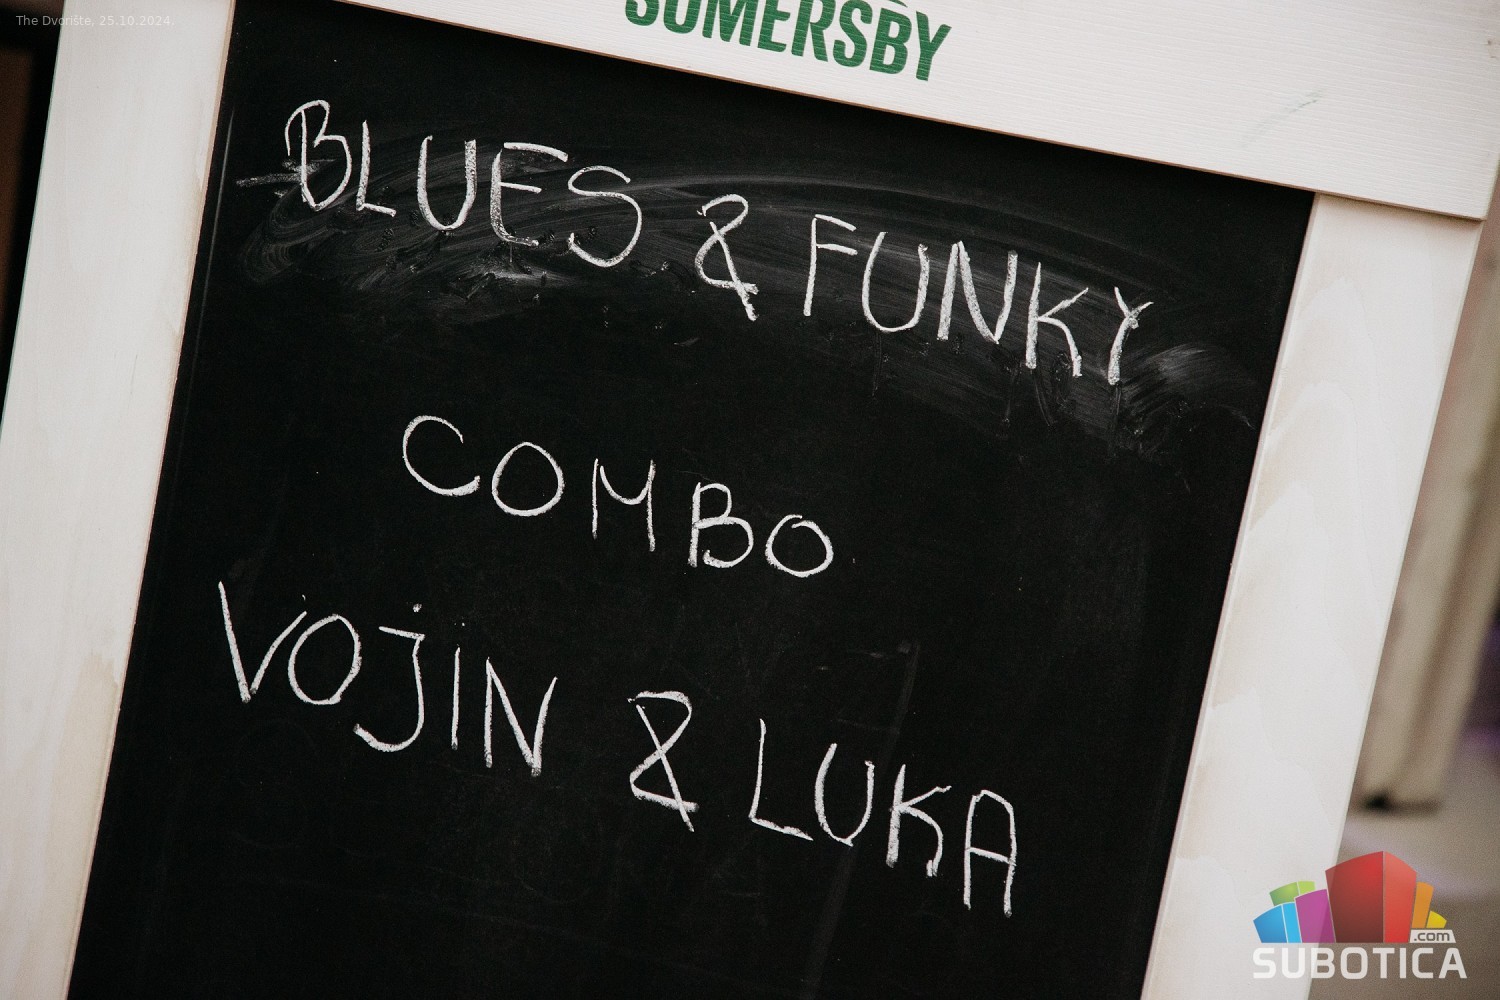 The Dvorište, 25.10.2024.
SOMERSBY
BLUES & FUNKY
COMBO
VOJIN & LUKA
.com
SUBOTICA